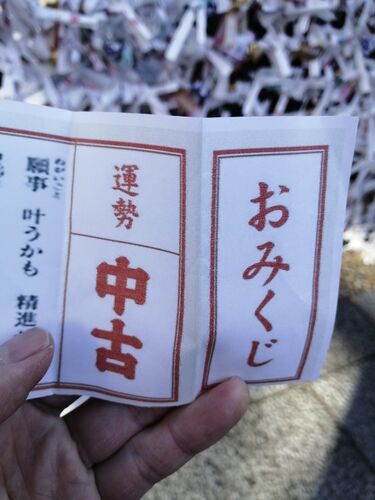 おみくじ
運勢
中古
ねがいごと
願事 叶うかも 精進